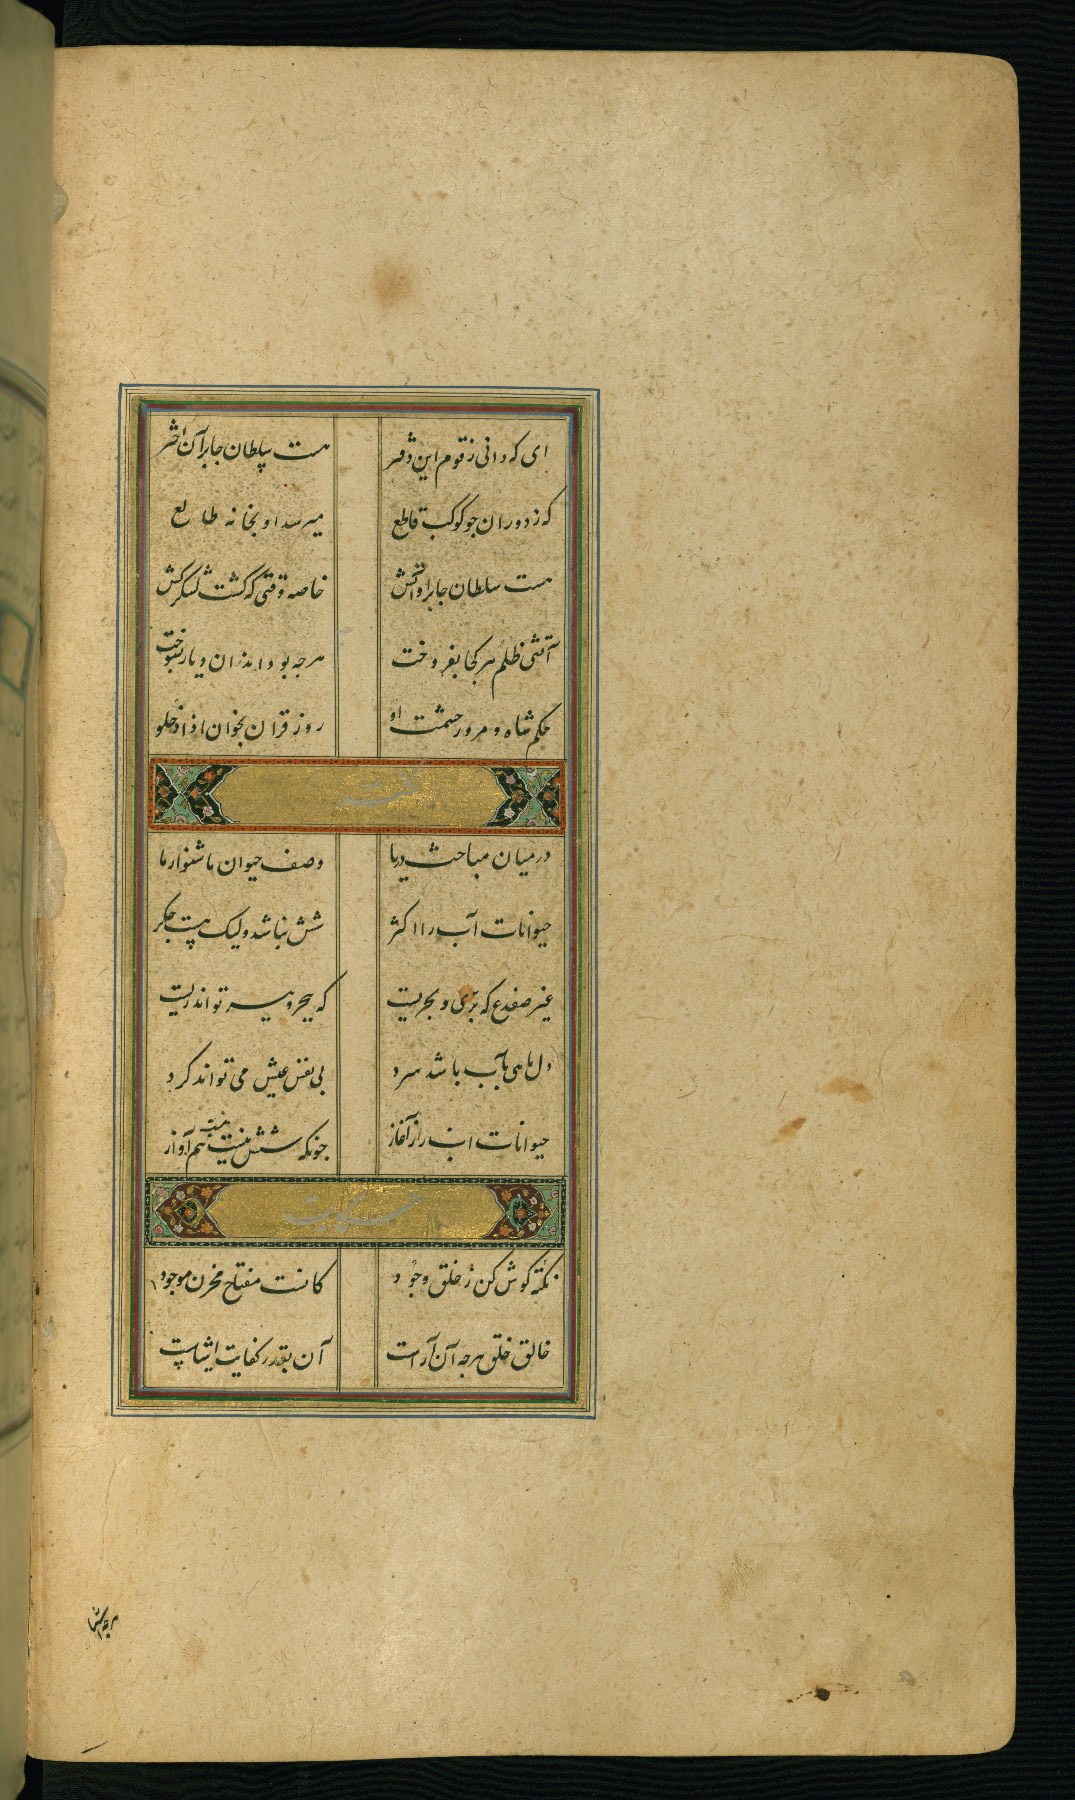 ای که دانی ز قوم این دفتر هست سلطان جابر آن اختر
که ز دوران چو کوکب قاطع میرسد او بخانه طالع
هست سلطان جابر آتش خاصه وقتی که گشت لشکرکش
آتش ظلم هر کجا بفروخت هرچه بود اندران دیار بسوخت
حکم شاه و مرور حشمت او روز قران بخوان اذا دخلو
درمیان مباحث دریا وصف حیوان ما شنو از ما
حیوانات آب را اکثر شش نباشد ولیک هست جکر
غیر ضفدع که بری و بحریست که ببحر و ببر تواند زیست
دل ماهی بآب باشد سرد بی نفس عیش می تواند کرد
حیوانات آب را ز آغاز چونکه شش نیست نیست هم آواز
حکایت
نکته کوش کن ز خلق وجود کانست مفتاح مخزن موجود
خالق خلق هرچه آن آراست آن بقدر کفایت ایشانست